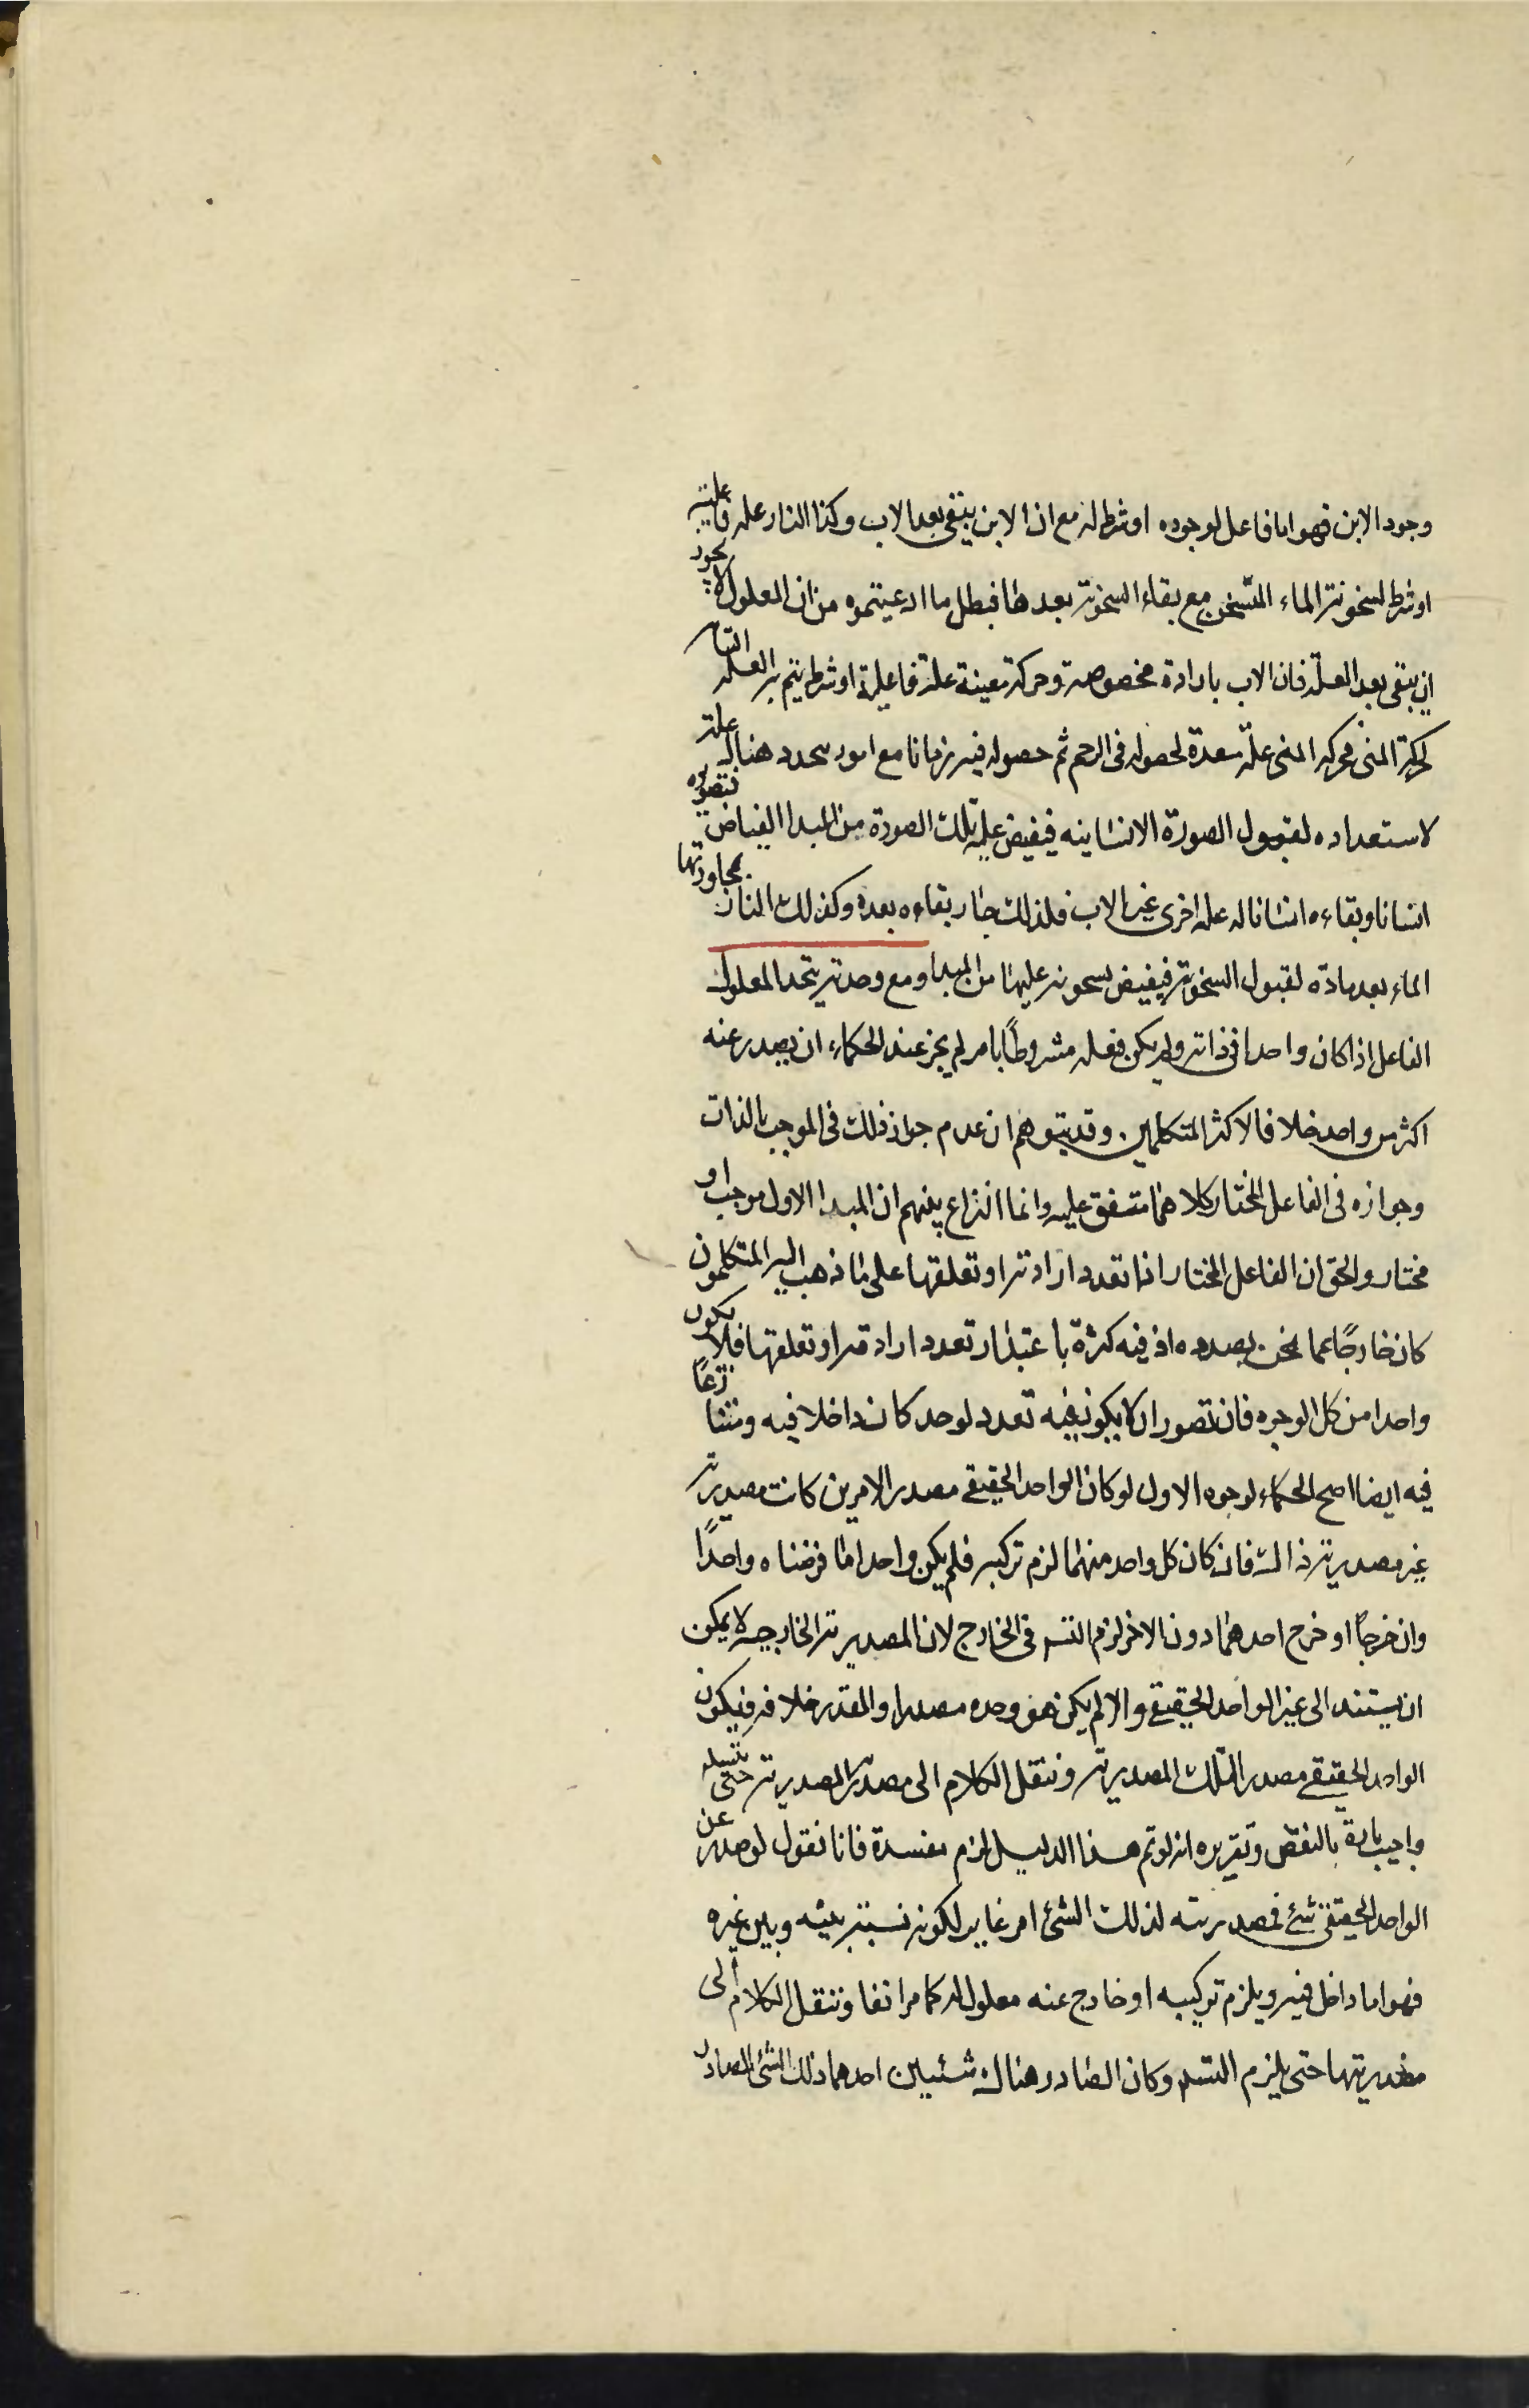 وجود الابن فهو اما فاعل لوجوده او شرط له مع ان الابن يبقى بعد الاب وكذا النار علة فاعلية
او شرط لسخونة الماء المتسخن مع بقاء السخونة بعدها فبطل ما ادعيتموه من ان المعلول لا يجوز
ان يبقى بعد العلة فان الاب بارادة مخصوصة وحركة معينة علة فاعلية او شرط يتم به العلة التامة
لحركة المنى فحركة المنى علة معدة لحصوله فى الرحم ثم حصوله فيه زمانا مع امور يتحدد هناك علة
لاستعداده لقبول الصورة الانسانية فيفيض عليه تلك الصورة من المبدا الفياض فتصوره
انسانا وبقاءه انسانا له علة اخرى غير الاب فلذلك جاز بقاءه بعده وكذلك النار بمجاورتها
الماء يعد مادة لقبول السخونة فيفيض سحونة عليها من المبدا ومع وحدته يتحد المعلول
الفاعل اذا كان واحدا فى ذاته ولم يكن فعله مشروطًا بامر لم يجز عند الحكماء ان يصدر عنه
اكثر من واحد خلافا لاكثر المتكلمين. وقد يتوهم ان عدم جواز ذلك فى الموجب بالذات
وجوازه فى الفاعل المختار كلاهما متفق عليه وانما النزاع بينهم ان المبدا الاول موجب او
مختار والحق ان الفاعل المختار اذا تعدد ارادته او تعلقها على ما ذهب اليه المتكلمون
كان خارجًا عما نحن بصدده اذ فيه كثرة باعتبار تعدد ارادته او تعلقها فلا يكون
واحدا من كل الوجوه فان تصور ان لا يكون فيه تعدد لوحد كان داخلا فيه ومتنازعًا
فيه ايضا احتج الحكماء لوجوه الاول لو كان الواحد الحقيقى مصدر الامرين كانت مصدرية
غير مصدرية ذاك فان كان كل واحد منهما لزم تركبه فلم يكن واحدا ما فرضناه واحدًا
وان خرجا او خرج احدهما دون الاخر لزم التسه فى الخارج لان المصدرية الخارجية لا يمكن
ان يستند الى غير الواحد الحقيقى والا لم يكن هو وحده مصدرا والمقدر خلافه فيكون
الواحد الحقيقى مصدر التلك المصدرية وننقل الكلام الى مصدرية المصدرية حتى يتسلسل
واجيب تارة بالنقض وتقريره انه لو تم هذا الدليل لزم مفسدة فانا نقول لو صدر عن
الواحد الحقيقى شئ فمصدريته لذلك الشئ امر غاير لكونه نسبة بينه وبين غيره
فهو اما داخل فيه ويلزم تركيبه او خارج عنه معلول له كما مر انفا وننقل الكلام الى
مصدريتها حتى يلزم التسه وكان الصادر هناك شيئين احدهما ذلك الشئ الصادر